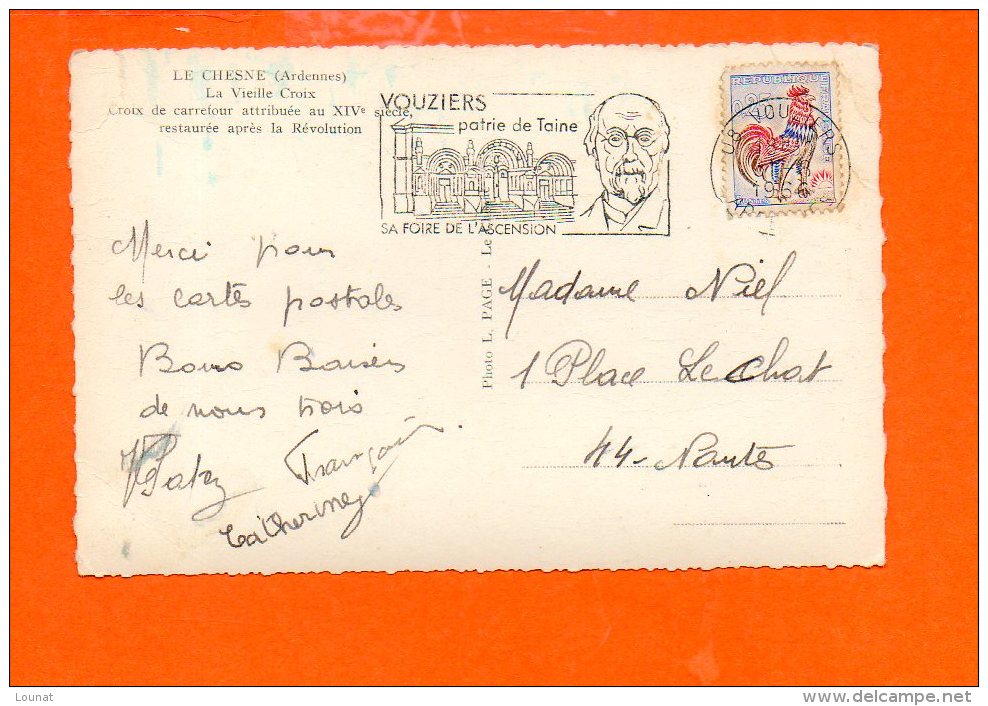 LE CHESNE (Ardennes)
La Vieille Croix
Croix de carrefour attribuée au XIVe siècle,
restaurée après la Révolution
VOUZIERS
patrie de Taine
SA FOIRE DE L'ASCENSION
REPUBLIQUE
0,25
08 VOUZIERS
1966
Merci pour
les cartes postales
Bons Baisers
de nous trois
François
Catherine
Photo L. PAGE - Le
Madame Niel
1 Place Lechat
44-Nantes
Lounat
delcampe.net